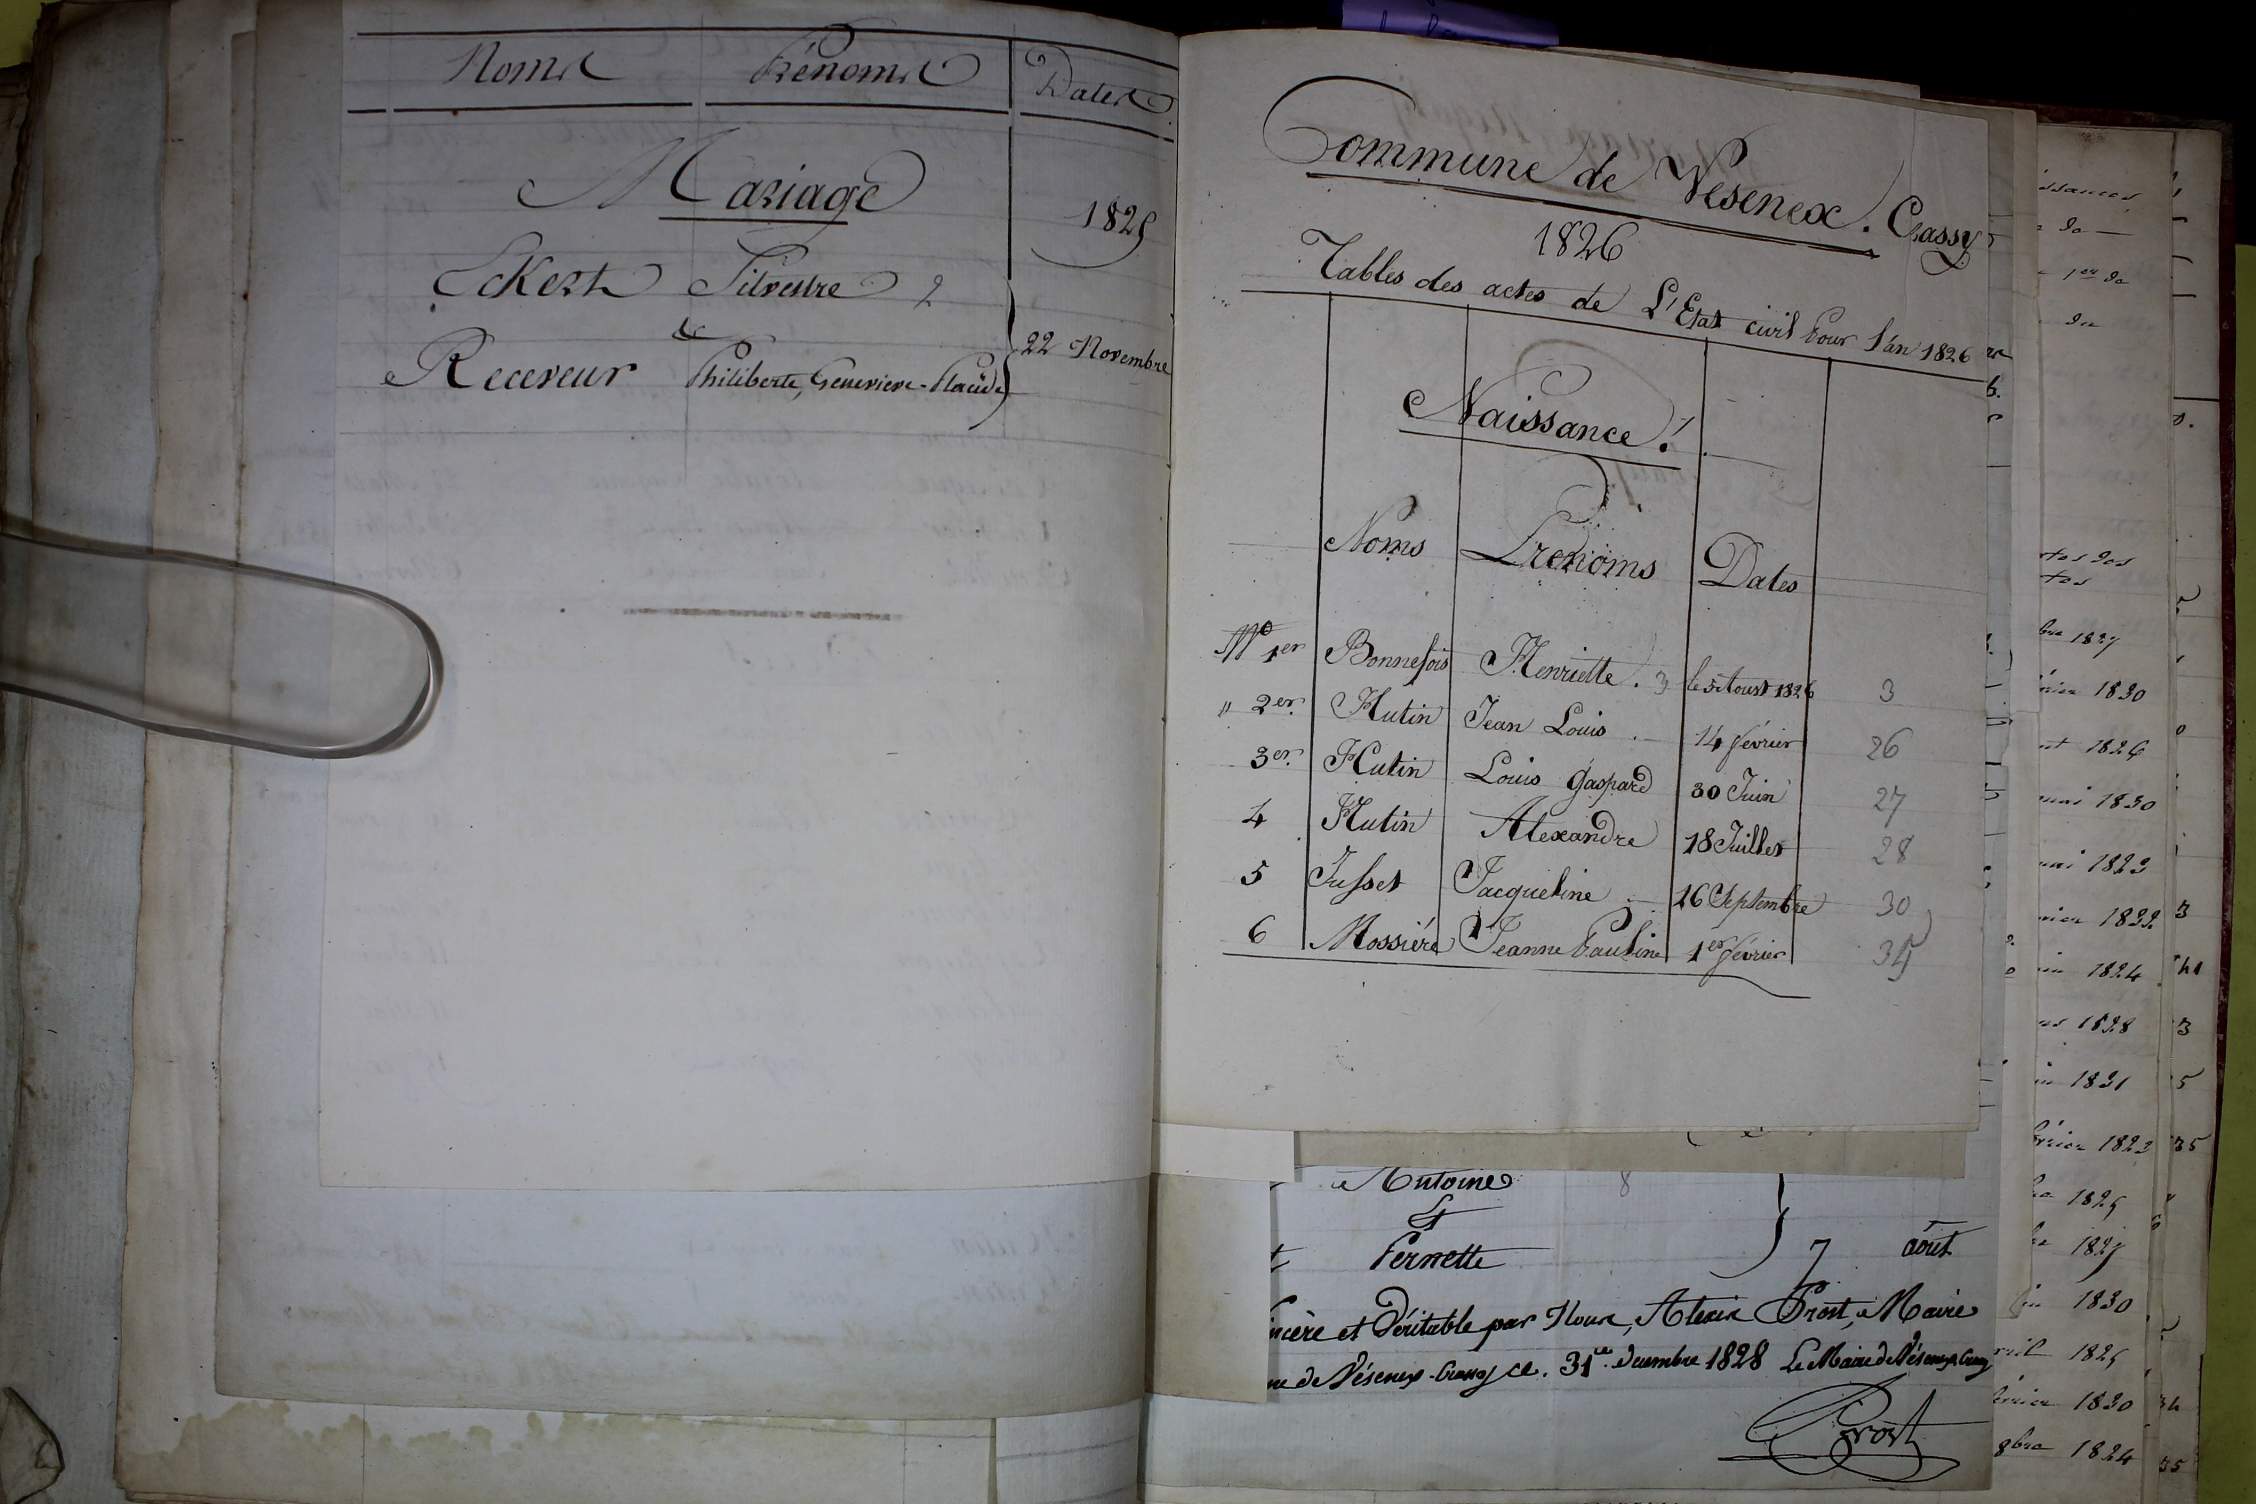 Noms Prénoms Dates
Mariage
1825
Eckert Silvestre 2
&
Receveur Philiberte, Genevieve-Placide
22 Novembre
Commune de Vesenex. Crassy
1826
Tables des actes de L'Etat civil pour l'an 1826
Naissance!
Noms Prenoms Dates
N° 1er Bonnefois Henriette. 3 le 5 Aoust 1826 3
" 2er. Hutin Jean Louis. 14 février 26
3er. Hutin Louis gaspard 30 Juin 27
4 Hutin Alexandre 18 Juillet 28
5 Jusset Jacqueline 16 Septembre 30
6 Mossiére Jeanne Pauline 1er février 35
Antoine 8
Et
Pernette 7 août
et Véritable par Nous, Alexis Prost, Maire
de Vésenex-Crassy ce. 31 decembre 1828 Le Maire de Vésenex Crassy
Prost
1er do
1827
1830
1826
mai 1830
mai 1823
1822 3
1824
1828 3
1831 5
1823 35
1825
1827
1830
1825
1830
8bre 1824 35